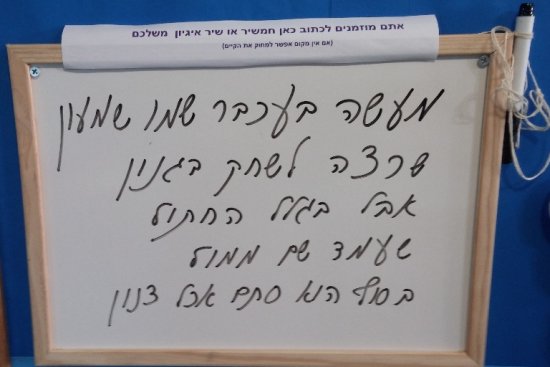 אתם מוזמנים לכתוב כאן חמשיר או שיר איגיון משלכם
(אם אין מקום אפשר למחוק את הקיים)
מעשה בעכבר שמו שמעון
שרצה לשחק בגנון
אבל בגלל החתול
שעמד שם ממול
בסוף הוא סתם אכל צנון